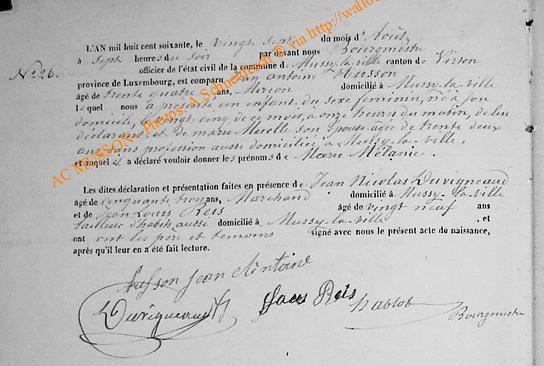 L'AN mil huit cent soixante, le vingt sept du mois d'Août
à sept heures du soir par devant nous Bourgmestre
officier de l'état civil de la commune de Mussy-la-ville canton de Virton
N° 26.
province de Luxembourg, est comparu Jean antoine Husson
âgé de trente quatre ans, domicilié à Mussy-la-ville
lequel nous a présenté un enfant, du sexe féminin, né à son
domicile, vingt cinq, de ce mois, a onze heures du matin, de lui
déclarant, et de marie son épouse agée de trente deux
ans, sans profession aussi domiciliée à Mussy-la-ville,
et auquel il a déclaré vouloir donner les prénoms de Marie Mélanie.
Les dites déclaration et présentation faites en présence de Jean Nicolas Duvigneaud
âgé de cinquante trois ans, Marchand domicilié à Mussy-la-ville
et de Jean Louis Reis âgé de vingt neuf ans
tailleur d'habits aussi domicilié à Mussy-la-ville, et
ont les père et témoins signé avec nous le présent acte de naissance,
après qu'il leur en a été fait lecture.
Husson Jean Antoine
Duvigneaud Reis
Bourgmestre
AC MUSSON - Photos: A.Schneidesch © via http://wallo